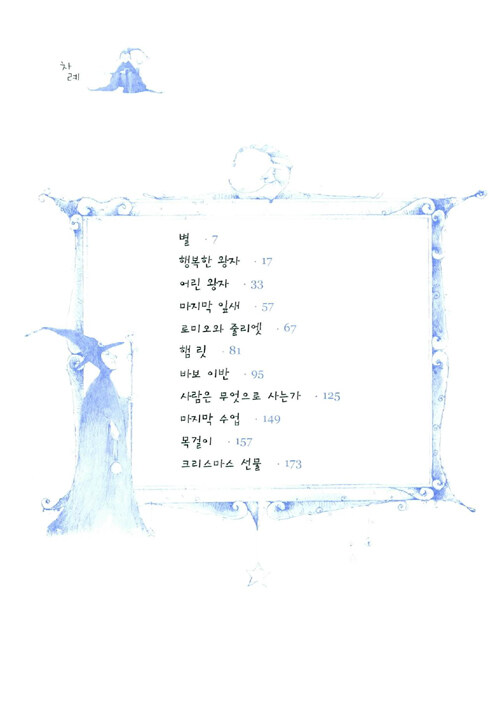 차
례
별 · 7
행복한 왕자 · 17
어린 왕자 · 33
마지막 잎새 · 57
로미오와 줄리엣 · 67
햄릿 · 81
바보 이반 · 95
사람은 무엇으로 사는가 · 125
마지막 수업 · 149
목걸이 · 157
크리스마스 선물 · 173